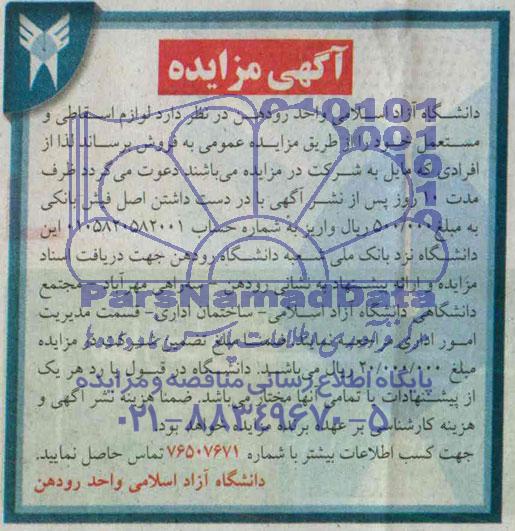 آگهی مزایده
دانشگاه آزاد اسلامی واحد رودهن در نظر دارد لوازم اسقاطی و
مستعمل خود را از طریق مزایده عمومی به فروش برساند لذا از
افرادی که مایل به شرکت در مزایده می‌باشند دعوت می‌گردد ظرف
مدت ۱۰ روز پس از نشر آگهی با در دست داشتن اصل فیش بانکی
به مبلغ ۵۰۰/۰۰۰ ریال واریز به شماره حساب ۰۱۰۵۸۲۰۵۸۲۰۰۱ این
دانشگاه نزد بانک ملی شعبه دانشگاه رودهن جهت دریافت اسناد
مزایده و ارائه پیشنهاد به نشانی رودهن - سه‌راهی مهرآباد - مجتمع
دانشگاهی دانشگاه آزاد اسلامی- ساختمان اداری- قسمت مدیریت
امور اداری مراجعه نمایند. ضمناً مبلغ تضمین شرکت در مزایده
مبلغ ۲۰/۰۰۰/۰۰۰ ریال می‌باشد. دانشگاه در قبول یا رد هر یک
از پیشنهادات یا تمامی آنها مختار می‌باشد. ضمناً هزینه نشر آگهی و
هزینه کارشناسی بر عهده برنده مزایده خواهد بود.
جهت کسب اطلاعات بیشتر با شماره ۷۶۵۰۷۶۷۱ تماس حاصل نمایید.
دانشگاه آزاد اسلامی واحد رودهن
ParsNamadData
پایگاه اطلاع رسانی مناقصه و مزایده
۰۲۱-۸۸۳۴۹۶۷۰-۵